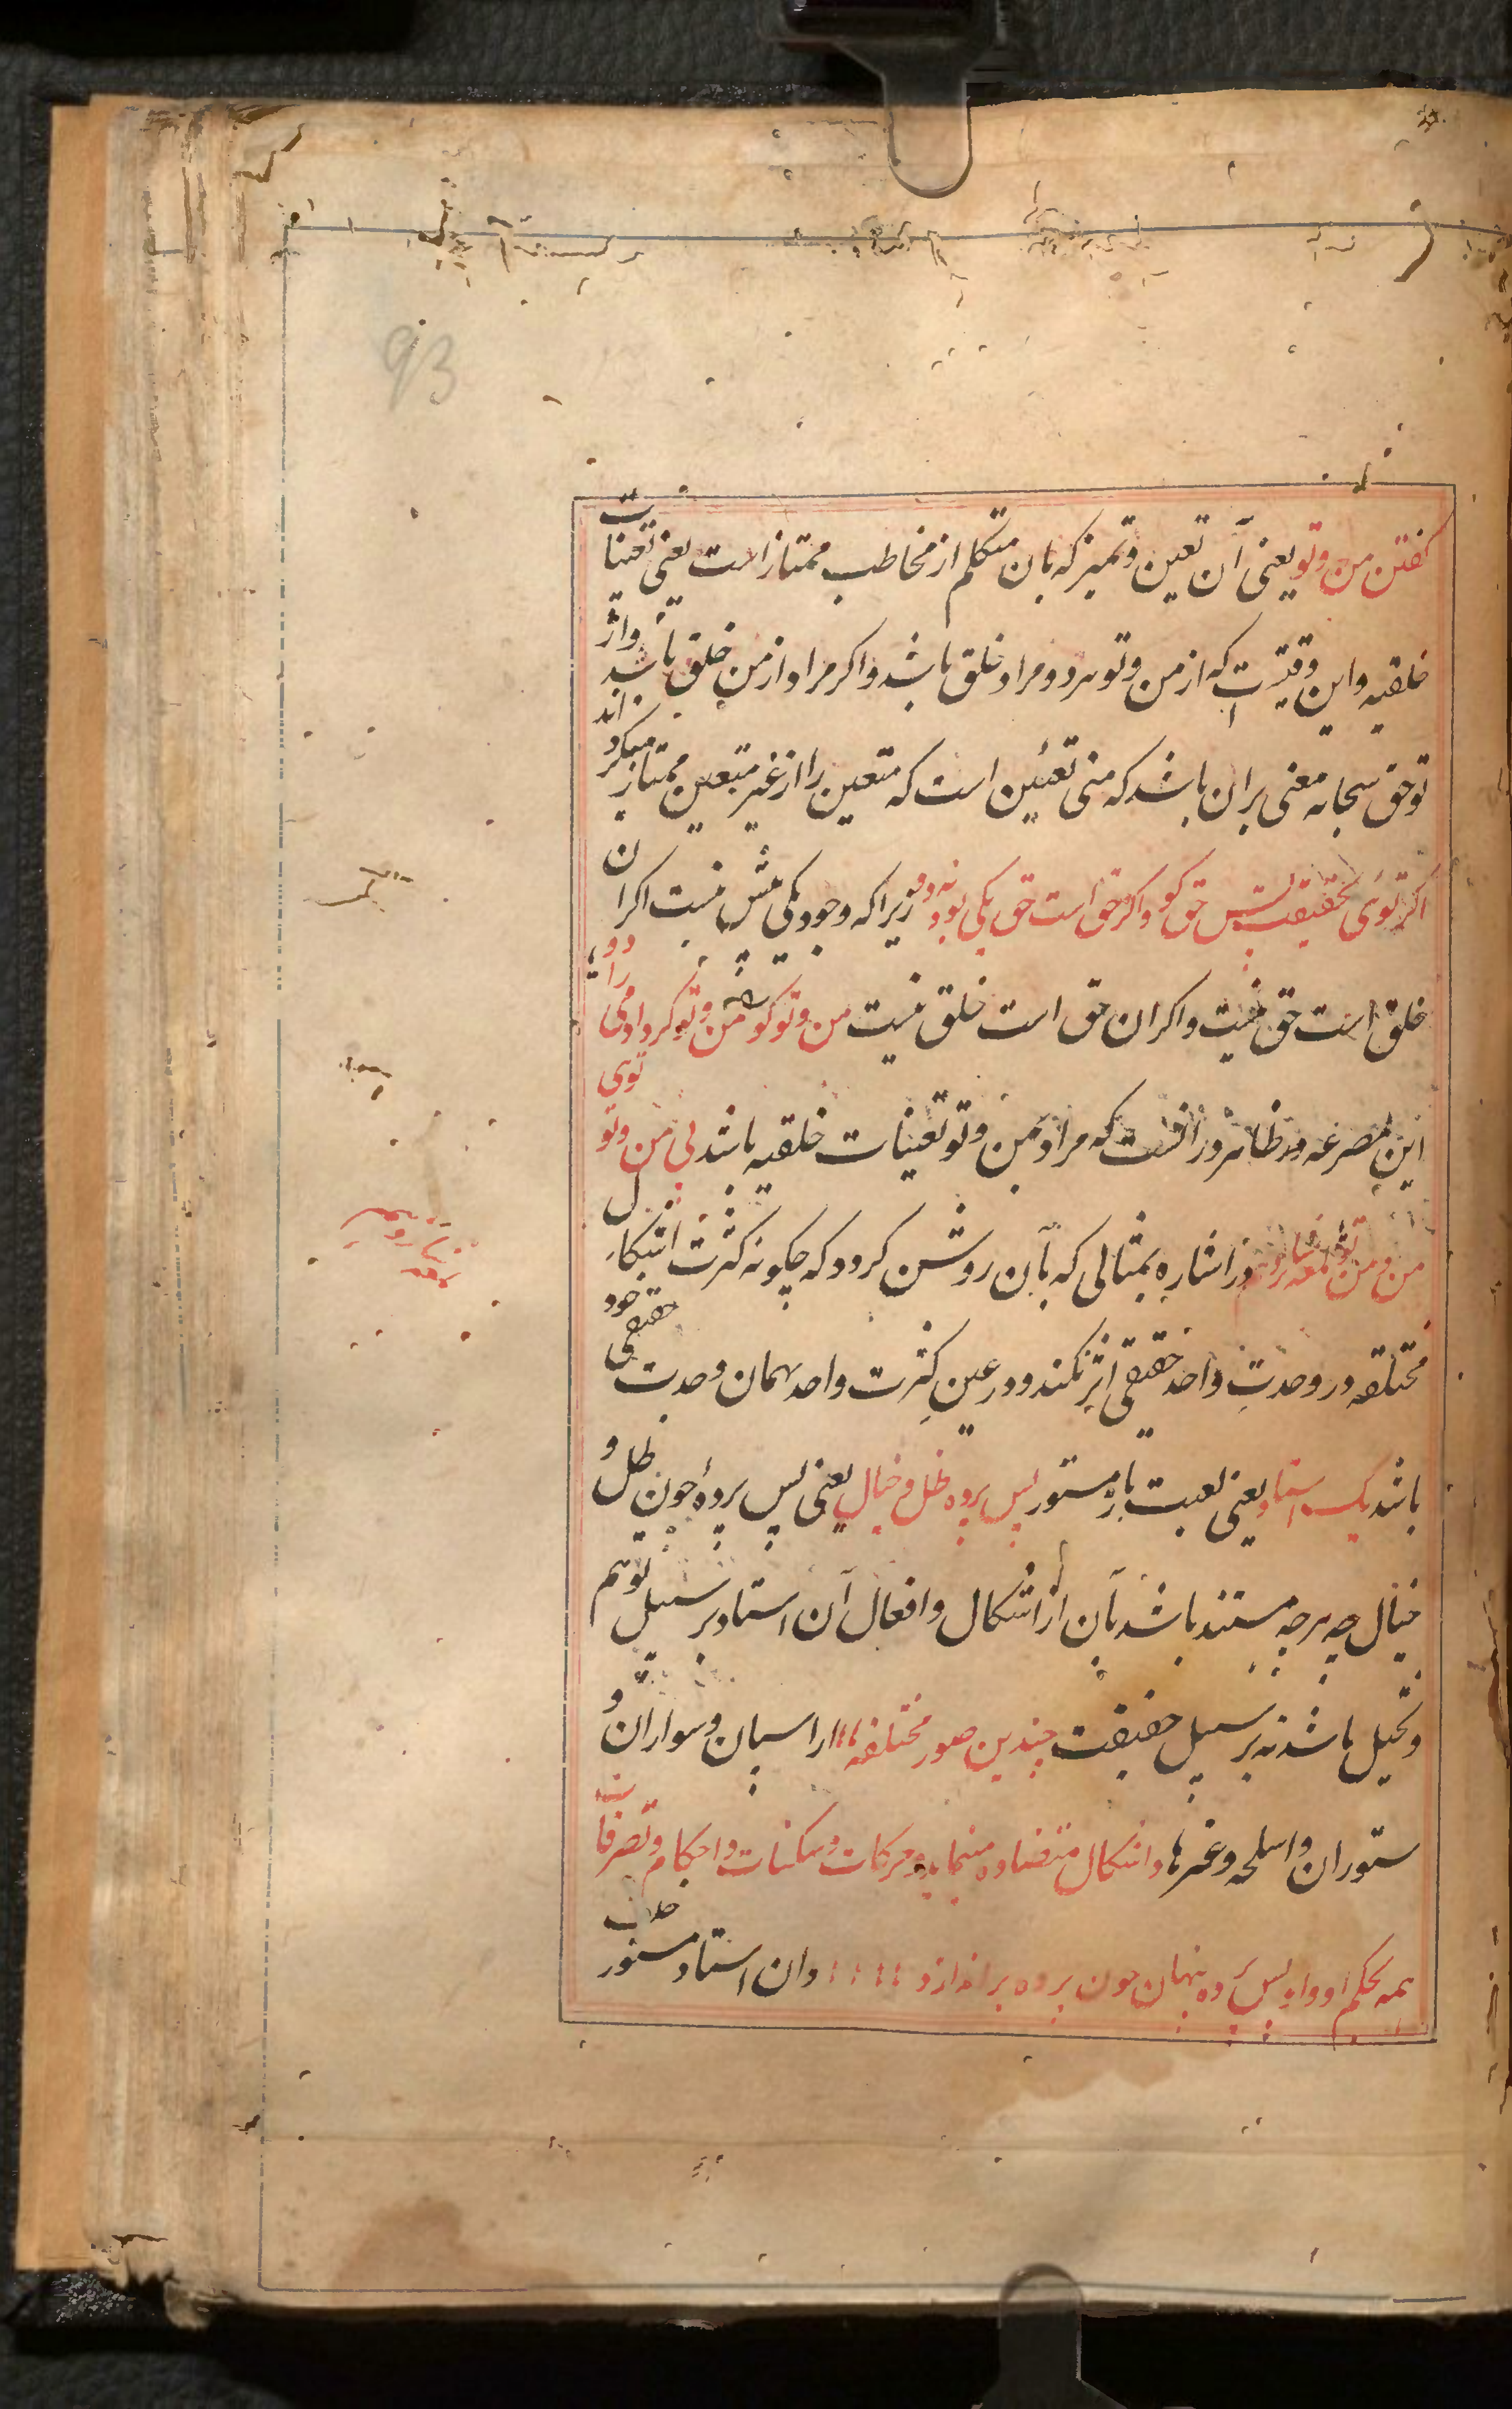 93
کفتن من و تو یعنی آن تعین و تمیز که بان متکلم از مخاطب ممتاز است یعنی تعینات
خلقیه و این وقتیست که از من و تو هر دو مراد خلق باشد و اکر مراد از من خلق باشد و از
تو حق سبحانه معنی بران باشد که منی تعین است که متعین را از غیر متعین ممتاز میکرداند
اکر توئی بحقیقت پس حق کو و اکر حق است حق یکی بود نه دو زیرا که وجود یکی بیش نیست اکر ان
خلق است حق نیست و اکر ان حق است خلق نیست من و تو کو من و تو کرد آدمی را دو
این مصرعه در ظاهر در انست که مراد بمن و تو تعینات خلقیه باشد بی من و تو توی
من و من تو لمعه در اشاره بمثالی که بآن روشن کردد که چکونه کثرت اشکال
مختلفه در وحدت واحد حقیقی اثر نکند و در عین کثرت واحد بهمان وحدت حقیقی خود
باشد یک استاد یعنی لعبت باز مستور پس پرده ظل و خیال یعنی پس پردهٔ چون ظل و
خیال چه هرچه مستند باشد بآن از اشکال و افعال آن استاد بر سبیل توهم
و تخیل باشد نه بر سبیل حقیقت چندین صور مختلفه از اسپان و سواران و
ستوران و اسلحه و غیرها و اشکال متضاده مینماید و حرکات و سکنات و احکام و تصرفات
همه بحکم او و او پس پرده پنهان چون پرده براندازد وان استاد مستور